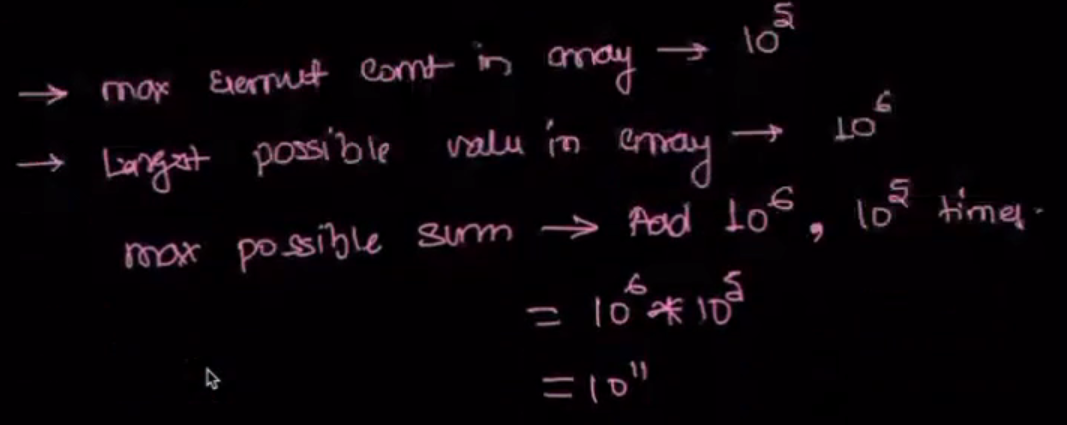 → max Element count in array → 10^5
→ Largest possible value in array → 10^6
max possible sum → Add 10^6, 10^5 times.
= 10^6 * 10^5
= 10^11